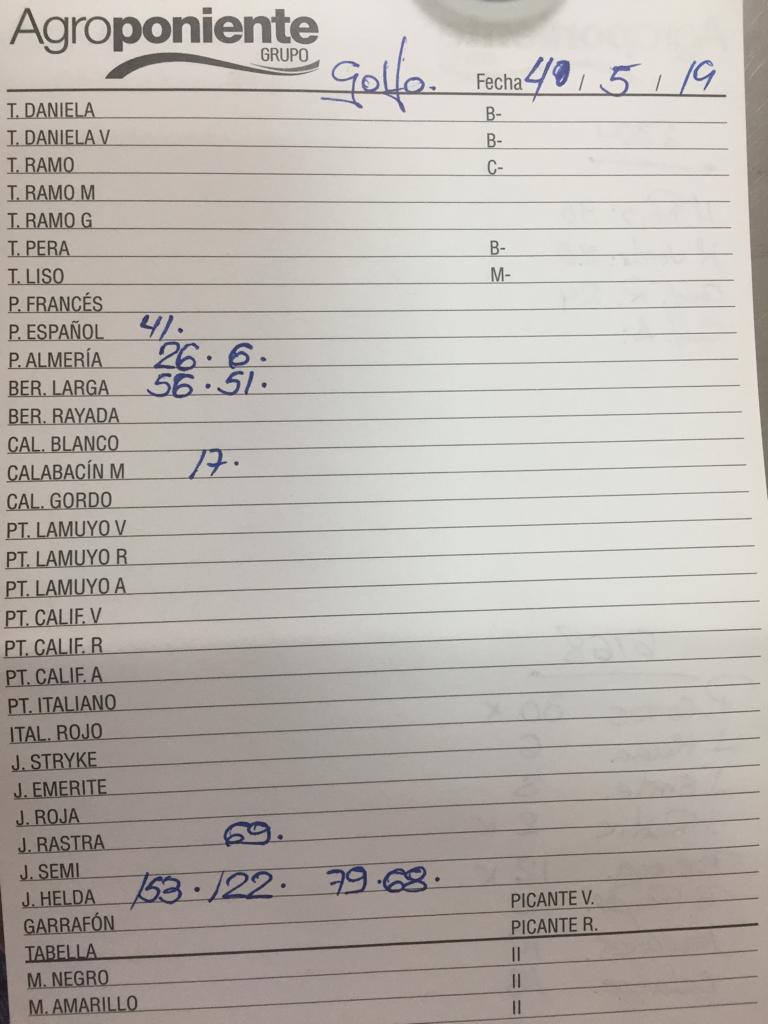 Agroponiente
GRUPO
Golfo. Fecha / 5 / 19
T. DANIELA B-
T. DANIELA V B-
T. RAMO C-
T. RAMO M
T. RAMO G
T. PERA B-
T. LISO M-
P. FRANCÉS
P. ESPAÑOL 41.
P. ALMERÍA 26. 6.
BER. LARGA 56. 51.
BER. RAYADA
CAL. BLANCO
CALABACÍN M 17.
CAL. GORDO
PT. LAMUYO V
PT. LAMUYO R
PT. LAMUYO A
PT. CALIF. V
PT. CALIF. R
PT. CALIF. A
PT. ITALIANO
ITAL. ROJO
J. STRYKE
J. EMERITE
J. ROJA
J. RASTRA 69.
J. SEMI
J. HELDA 153. 122. 79. 68.
GARRAFÓN PICANTE V.
TABELLA PICANTE R.
M. NEGRO II
M. AMARILLO II
II